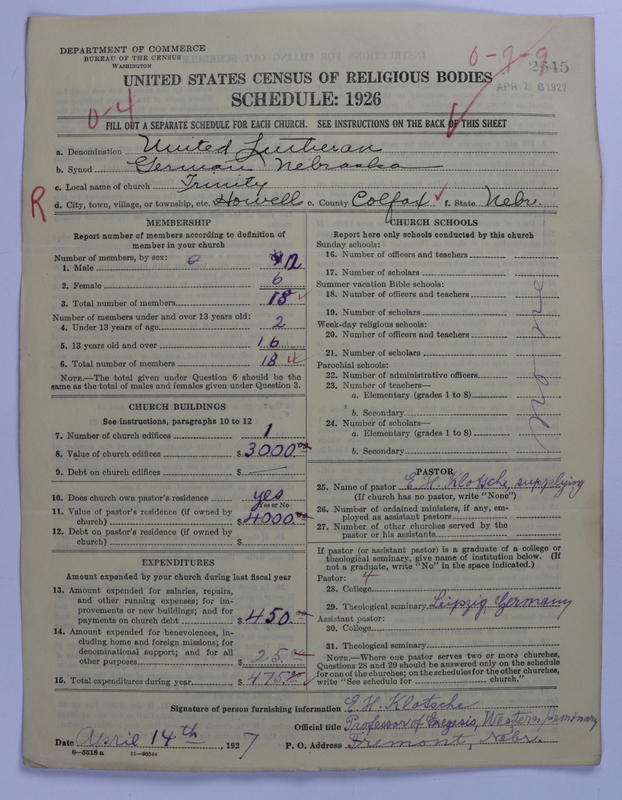 DEPARTMENT OF COMMERCE
BUREAU OF THE CENSUS
WASHINGTON
0-9-9
2545
APR 16 1927
UNITED STATES CENSUS OF RELIGIOUS BODIES
SCHEDULE: 1926
0-4
FILL OUT A SEPARATE SCHEDULE FOR EACH CHURCH. SEE INSTRUCTIONS ON THE BACK OF THIS SHEET
a. Denomination United Lutheran
b. Synod German Nebraska
c. Local name of church Trinity
R
d. City, town, village, or township, etc. Howell e. County Colfax f. State Nebr.
MEMBERSHIP
Report number of members according to definition of
member in your church
Number of members, by sex:
1. Male 12
2. Female 6
3. Total number of members 18
Number of members under and over 13 years old:
4. Under 13 years of age 2
5. 13 years old and over 16
6. Total number of members 18 4
NOTE.—The total given under Question 6 should be
the same as the total of males and females given under Question 3.
CHURCH BUILDINGS
See instructions, paragraphs 10 to 12
7. Number of church edifices 1
8. Value of church edifices $3000.00
9. Debt on church edifices $ —
10. Does church own pastor's residence yes
Yes or No
11. Value of pastor's residence (if owned by
church) $4000.00
12. Debt on pastor's residence (if owned by
church) $
EXPENDITURES
Amount expended by your church during last fiscal year
13. Amount expended for salaries, repairs,
and other running expenses; for im-
provements or new buildings; and for
payments on church debt $450.
14. Amount expended for benevolences, in-
cluding home and foreign missions; for
denominational support; and for all
other purposes $25.
15. Total expenditures during year $475.
CHURCH SCHOOLS
Report here only schools conducted by this church
Sunday schools:
16. Number of officers and teachers
17. Number of scholars
Summer vacation Bible schools:
18. Number of officers and teachers
19. Number of scholars
Week-day religious schools:
20. Number of officers and teachers
21. Number of scholars
Parochial schools:
22. Number of administrative officers
23. Number of teachers—
a. Elementary (grades 1 to 8)
b. Secondary
24. Number of scholars—
a. Elementary (grades 1 to 8)
b. Secondary
none
PASTOR
25. Name of pastor E. H. Klotsche, supplying
(If church has no pastor, write "None")
26. Number of ordained ministers, if any, em-
ployed as assistant pastors
27. Number of other churches served by the
pastor or his assistants
If pastor (or assistant pastor) is a graduate of a college or
theological seminary, give name of institution below. (If
not a graduate, write "No" in the space indicated.)
Pastor: 4
28. College
29. Theological seminary Leipzig Germany
Assistant pastor:
30. College
31. Theological seminary
NOTE.—Where one pastor serves two or more churches,
Questions 28 and 29 should be answered only on the schedule
for one of the churches; on the schedules for the other churches,
write "See schedule for church."
Signature of person furnishing information E. H. Klotsche
Official title Professor of Exegesis, Western Seminary
Date April 14th, 1927 P. O. Address Fremont, Nebr.
6—5518 a